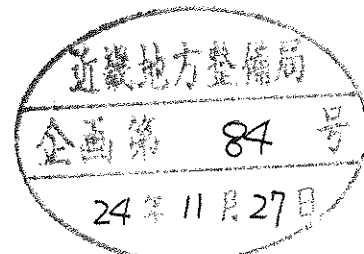 近畿地方整備局
企画第 84 号
24年11月27日